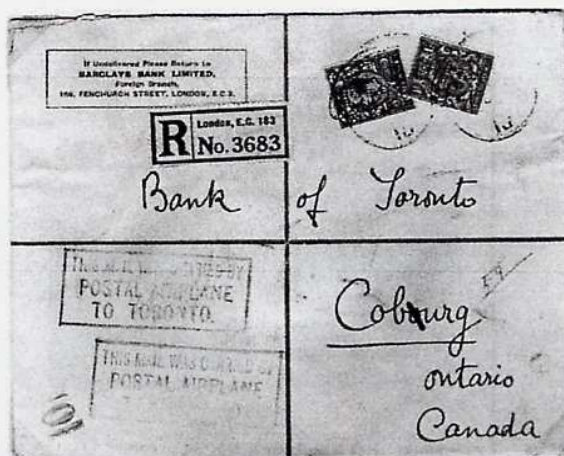 If Undelivered Please Return to
BARCLAYS BANK LIMITED,
Foreign Branch,
168, FENCHURCH STREET, LONDON, E.C.3.
R
London, E.C. 183
No. 3683
Bank of Toronto
THIS MAIL WAS CARRIED BY
POSTAL AIRPLANE
TO TORONTO.
THIS MAIL WAS CARRIED BY
POSTAL AIRPLANE
Cobourg
ontario
Canada